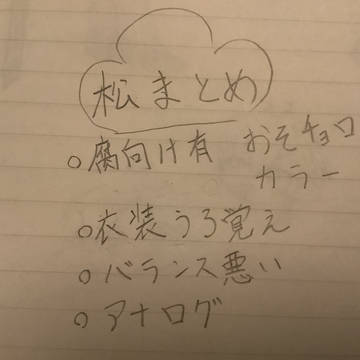 松まとめ
○腐向け有 おそチョロ
カラー
○衣装うろ覚え
○バランス悪い
○アナログ